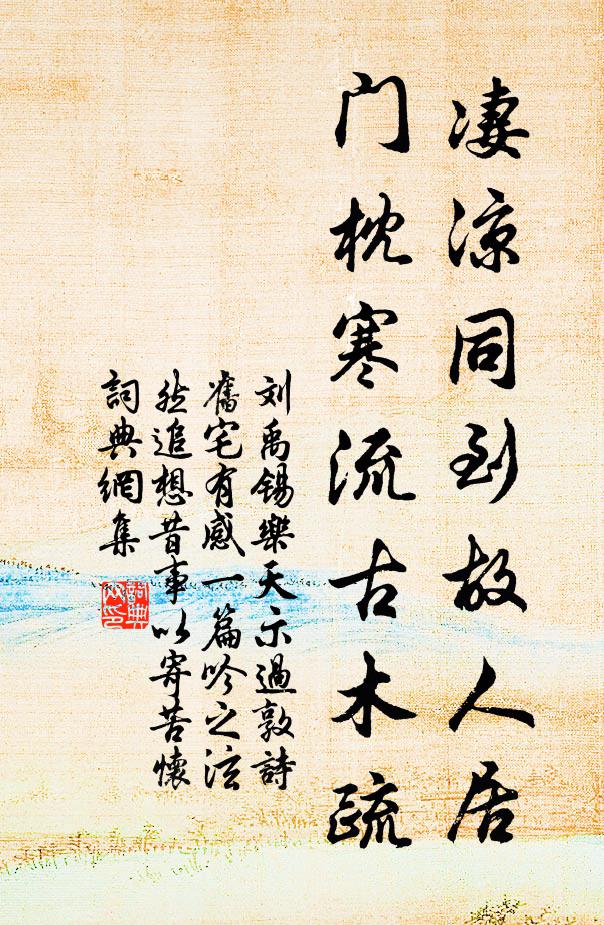 凄凉同到故人居
門枕寒流古木疏
刘禹锡樂天示過敦詩
舊宅有感一篇吟之泫
然追想昔事以寄苦懷
詞典網集